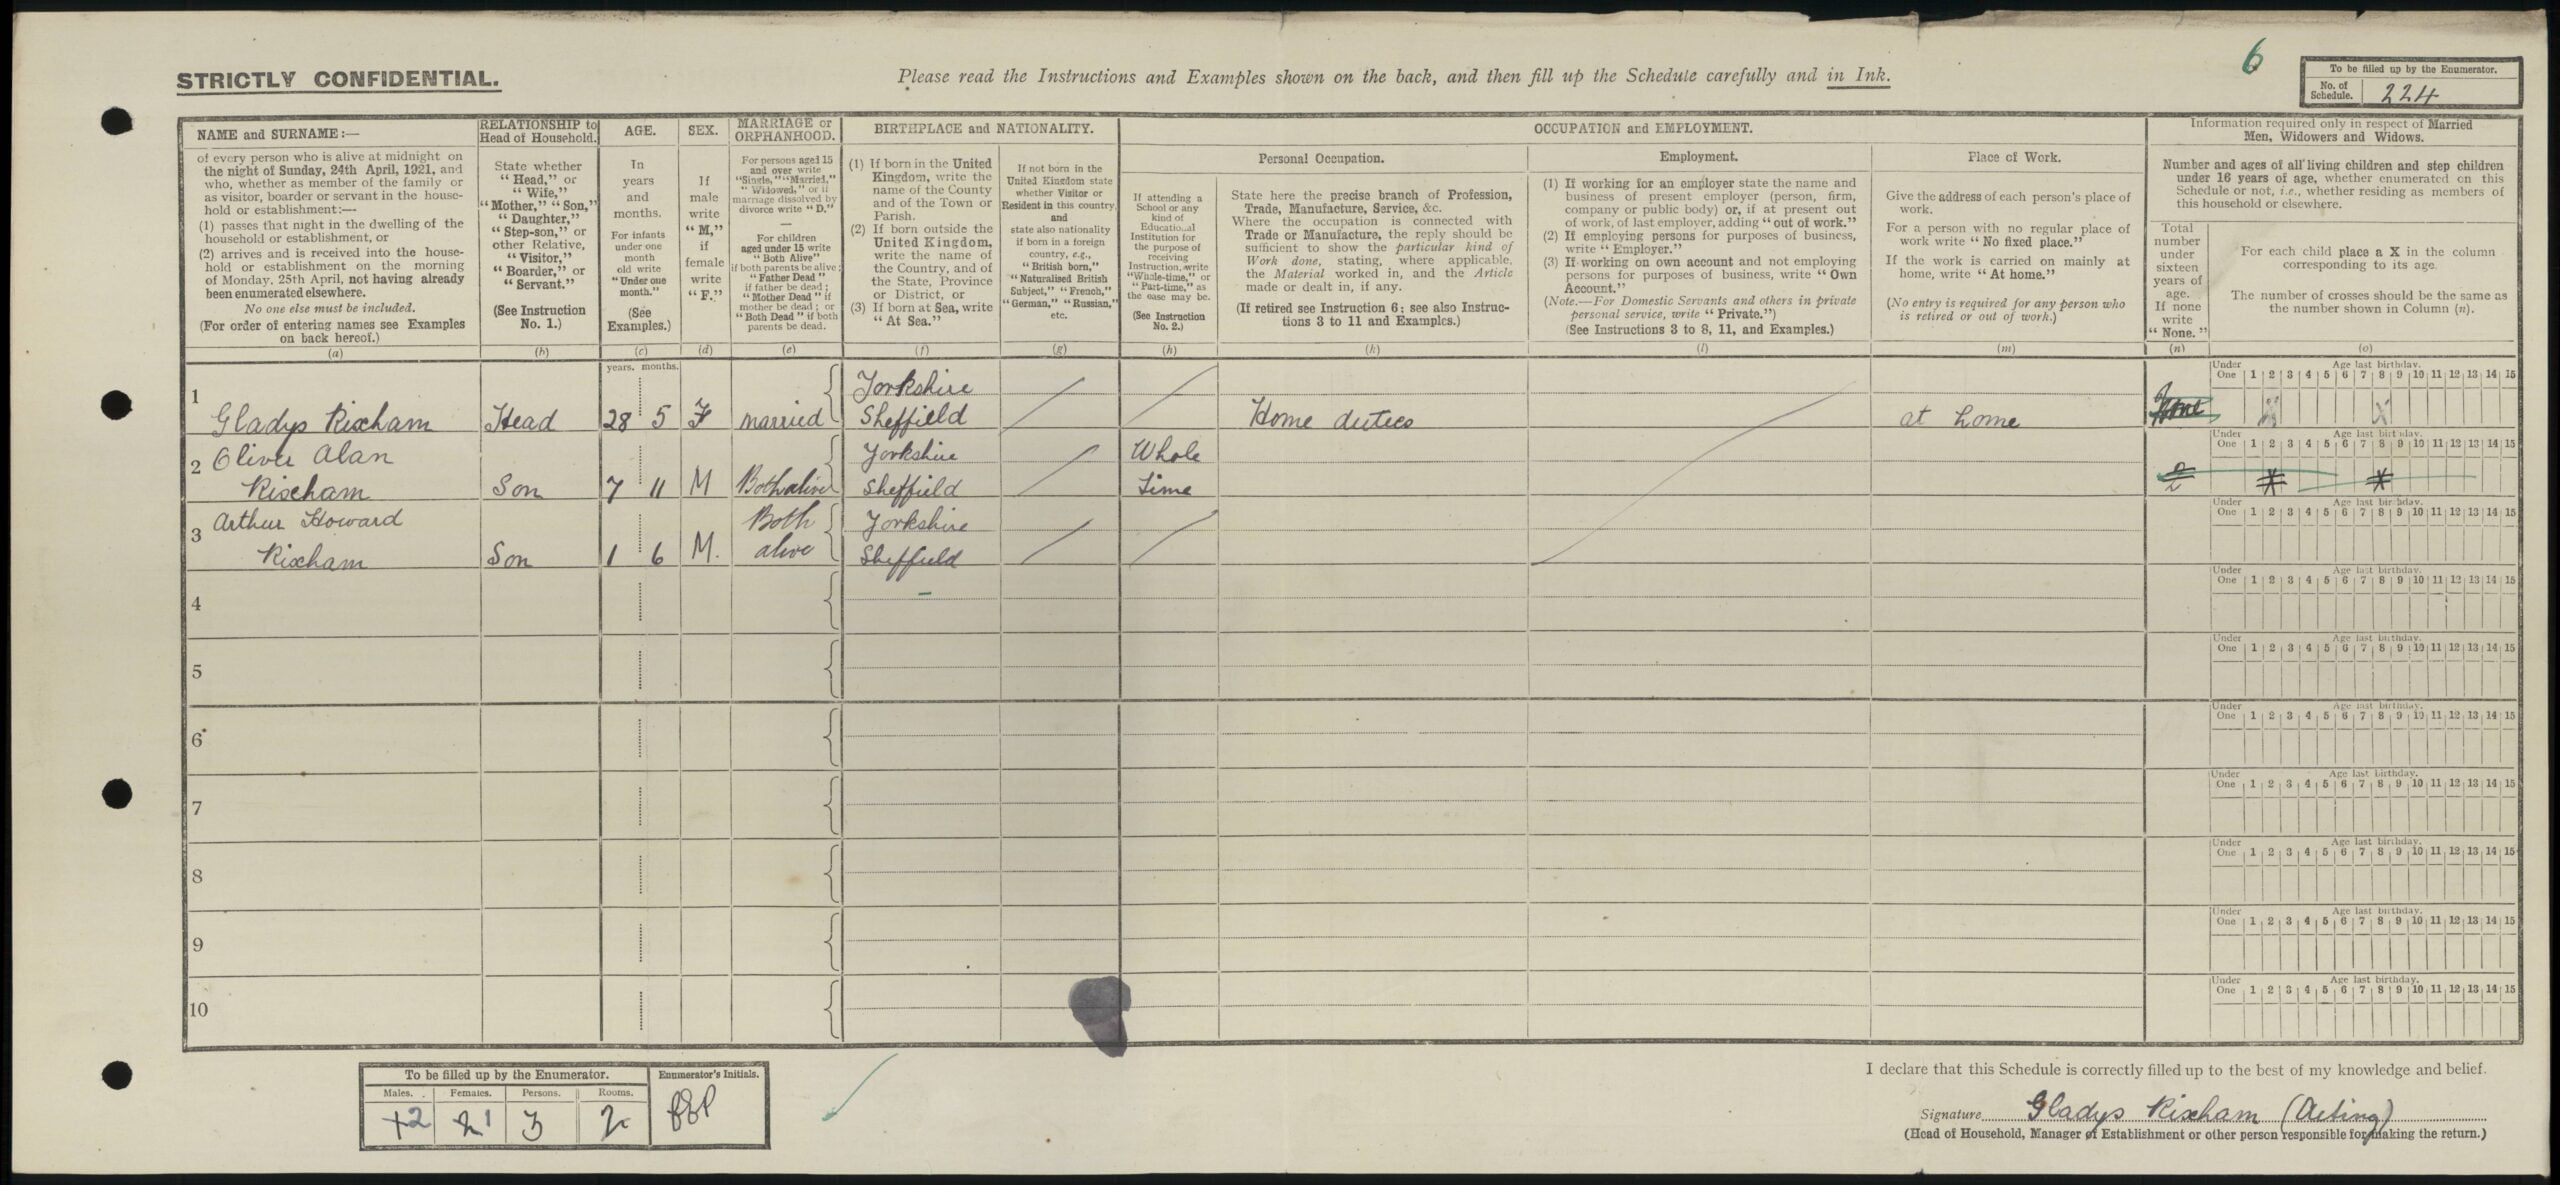 STRICTLY CONFIDENTIAL.
Please read the Instructions and Examples shown on the back, and then fill up the Schedule carefully and in Ink.
6
To be filled up by the Enumerator.
No. of Schedule. 224
NAME and SURNAME:—
of every person who is alive at midnight on
the night of Sunday, 24th April, 1921, and
who, whether as member of the family or
as visitor, boarder or servant in the house-
hold or establishment:—
(1) passes that night in the dwelling of the
household or establishment, or
(2) arrives and is received into the house-
hold or establishment on the morning
of Monday, 25th April, not having already
been enumerated elsewhere.
No one else must be included.
(For order of entering names see Examples
on back hereof.)
(a)
RELATIONSHIP to
Head of Household.
State whether
"Head," or
"Wife,"
"Mother," "Son,"
"Daughter,"
"Step-son," or
other Relative,
"Visitor,"
"Boarder," or
"Servant."
(See Instruction
No. 1.)
(b)
AGE.
In
years
and
months.
For infants
under one
month
old write
"Under one
month."
(See
Examples.)
(c)
SEX.
If
male
write
"M,"
if
female
write
"F."
(d)
MARRIAGE or
ORPHANHOOD.
For persons aged 15
and over write
"Single," "Married,"
"Widowed," or if
marriage dissolved by
divorce write "D."
For children
aged under 15 write
"Both Alive"
if both parents be alive;
"Father Dead"
if father be dead;
"Mother Dead" if
mother be dead; or
"Both Dead" if both
parents be dead.
(e)
BIRTHPLACE and NATIONALITY.
(1) If born in the United
Kingdom, write the
name of the County
and of the Town or
Parish.
(2) If born outside the
United Kingdom,
write the name of
the Country, and of
the State, Province
or District, or
(3) If born at Sea, write
"At Sea."
(f)
If not born in the
United Kingdom state
whether Visitor or
Resident in this country,
and
state also nationality
if born in a foreign
country, e.g.,
"British born,"
"Naturalised British
Subject," "French,"
"German," "Russian,"
etc.
(g)
OCCUPATION and EMPLOYMENT.
Personal Occupation.
If attending a
School or any
kind of
Educational
Institution for
the purpose of
receiving
Instruction, write
"Whole-time," or
"Part-time," as
the case may be.
(See Instruction
No. 2.)
(h)
State here the precise branch of Profession,
Trade, Manufacture, Service, &c.
Where the occupation is connected with
Trade or Manufacture, the reply should be
sufficient to show the particular kind of
Work done, stating, where applicable,
the Material worked in, and the Article
made or dealt in, if any.
(If retired see Instruction 6: see also Instruc-
tions 3 to 11 and Examples.)
(k)
Employment.
(1) If working for an employer state the name and
business of present employer (person, firm,
company or public body) or, if at present out
of work, of last employer, adding "out of work."
(2) If employing persons for purposes of business,
write "Employer."
(3) If working on own account and not employing
persons for purposes of business, write "Own
Account."
(Note.—For Domestic Servants and others in private
personal service, write "Private.")
(See Instructions 3 to 8, 11, and Examples.)
(l)
Place of Work.
Give the address of each person's place of
work.
For a person with no regular place of
work write "No fixed place."
If the work is carried on mainly at
home, write "At home."
(No entry is required for any person who
is retired or out of work.)
(m)
Information required only in respect of Married
Men, Widowers and Widows.
Number and ages of all living children and step children
under 16 years of age, whether enumerated on this
Schedule or not, i.e., whether residing as members of
this household or elsewhere.
Total
number
under
sixteen
years of
age.
If none
write
"None."
(n)
For each child place a X in the column
corresponding to its age.
The number of crosses should be the same as
the number shown in Column (n).
(o)
years. months.
Under One Age last birthday. 1 2 3 4 5 6 7 8 9 10 11 12 13 14 15
1 Gladys Rixham Head 28 5 F married Yorkshire Sheffield Home duties at home None X X
Under One Age last birthday. 1 2 3 4 5 6 7 8 9 10 11 12 13 14 15
2 Oliver Alan Rixham Son 7 11 M Both alive Yorkshire Sheffield Whole time 2 X X
Under One Age last birthday. 1 2 3 4 5 6 7 8 9 10 11 12 13 14 15
3 Arthur Howard Rixham Son 1 6 M. Both alive Yorkshire Sheffield
Under One Age last birthday. 1 2 3 4 5 6 7 8 9 10 11 12 13 14 15
4
Under One Age last birthday. 1 2 3 4 5 6 7 8 9 10 11 12 13 14 15
5
Under One Age last birthday. 1 2 3 4 5 6 7 8 9 10 11 12 13 14 15
6
Under One Age last birthday. 1 2 3 4 5 6 7 8 9 10 11 12 13 14 15
7
Under One Age last birthday. 1 2 3 4 5 6 7 8 9 10 11 12 13 14 15
8
Under One Age last birthday. 1 2 3 4 5 6 7 8 9 10 11 12 13 14 15
9
Under One Age last birthday. 1 2 3 4 5 6 7 8 9 10 11 12 13 14 15
10
To be filled up by the Enumerator.
Males. Females. Persons. Rooms.
1 2 2 1 3 2
Enumerator's Initials.
I declare that this Schedule is correctly filled up to the best of my knowledge and belief.
Signature Gladys Rixham (Acting)
(Head of Household, Manager of Establishment or other person responsible for making the return.)